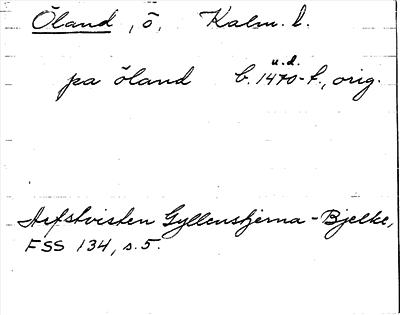 Öland, ö, Kalm. l.
u.d.
pa öland b. 1470-t., orig.
Arfstvisten Gyllenstjerna - Bjelke,
FSS 134, s. 5.